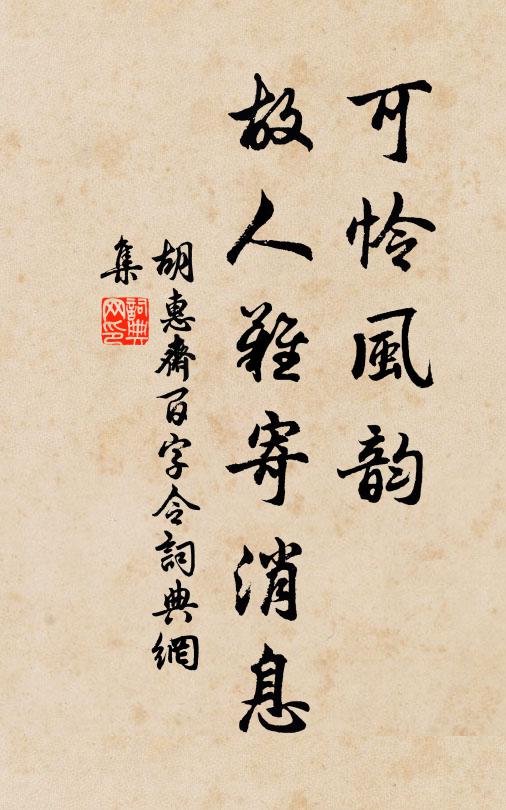 可怜風韵
故人難寄消息
胡惠齋百字令詞典網
集
詞典
网印